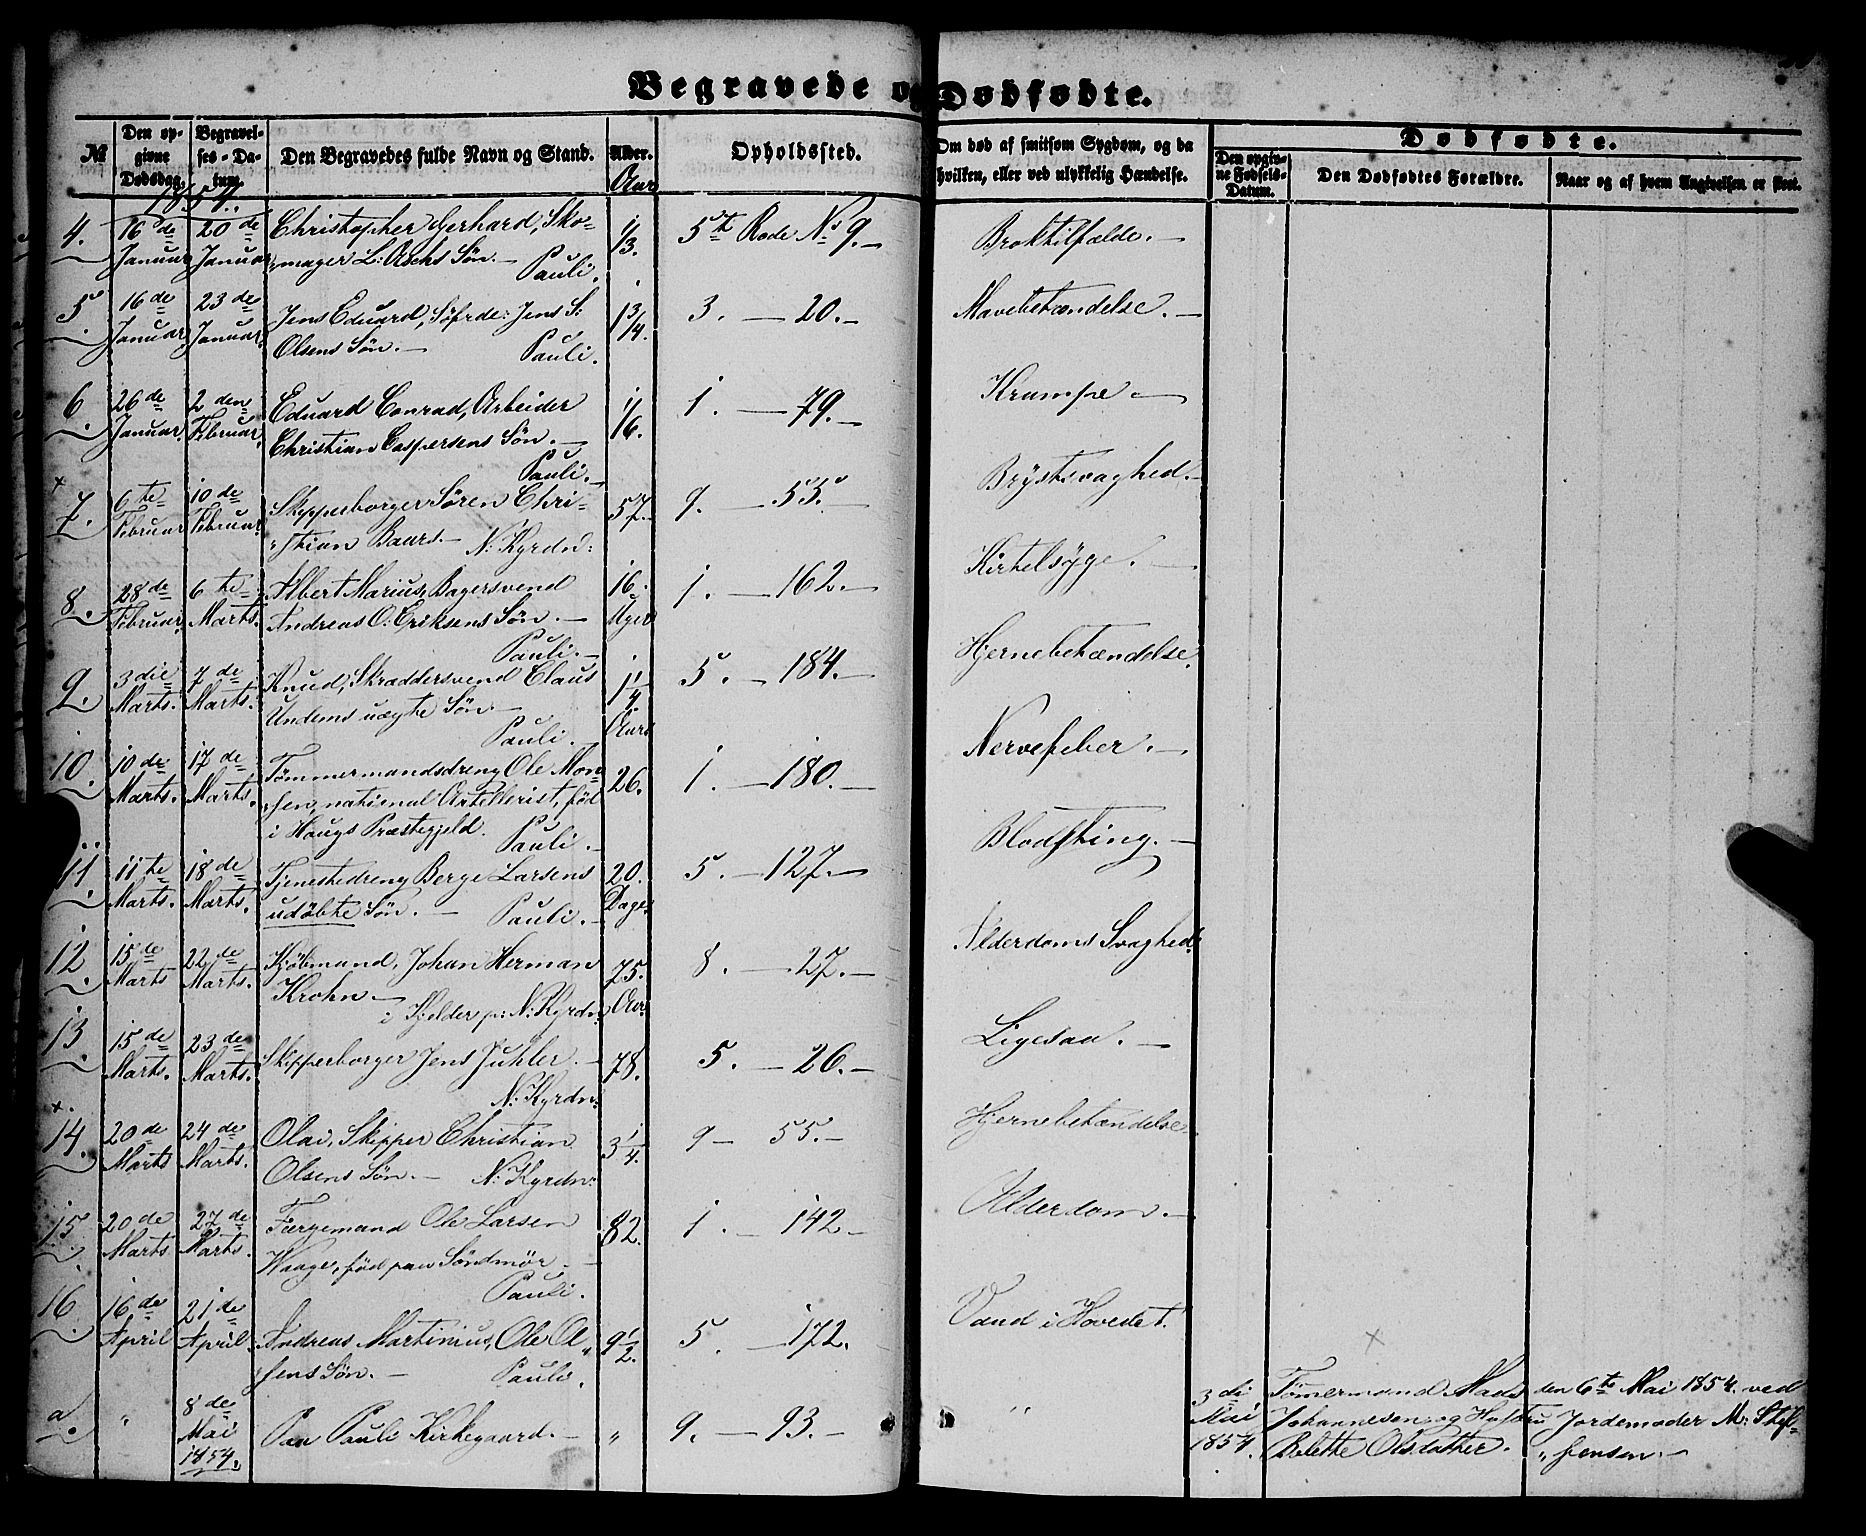 Begravede og Dødfødte.
№ Den opgivne Dødsdag. Begravelses-Datum. Den Begravedes fulde Navn og Stand. Alder. Aar Opholdssted. Om død af smitsom Sygdom, og da hvilken, eller ved ulykkelig Hændelse. Dødfødte. Den opgivne Fødsels-Datum. Den Dødfødtes Forældre. Naar og af hvem Angivelsen er skeet.
1854.
4. 16de 20de Christopher Gerhard, Sko- 1/3. 5te Rode No 9.— Broktilfælde.—
Januar Januar mager L: Aschs Søn.— Pauli.
5. 16de 23de Jens Eduard, Søfrde: Jens S: 1 3/4. 3. — 20.— Mavebetændelse.—
Januar. Januar. Olsens Søn.— Pauli.
6. 26de 2den Eduard Conrad, Arbeider 1/16. 1. — 79.— Krampe.—
Januar. Februar. Christian Caspersens Søn.—
Pauli.—
× 7. 6te 10de Skipperborger Søren Chri- 57.— 9. — 55.— Brystsvaghed.—
Februar Februar. stian Baars.— N: Kyrdn:
8. 28de 6te Albert Marius, Bagersvend 16. 1. — 162.— Kirtelsyge.—
Februar. Marts. Andreas O: Eriksens Søn.— Uger
Pauli.—
9. 3die 7de Knud, Skræddersvend Claus 1 1/4. 5. — 184.— Hjernebetændelse.
Marts. Marts. Undems uægte Søn.— Aars
Pauli.—
10. 10de 17de Tømmermandsdreng Ole Mon- 26. 1. — 180.— Nervefeber.—
Marts. Marts. sen, national Artellerist, fød
i Haugs Præstegjeld. Pauli.—
11. 11te 18de Tjenestedreng Berge Larsens 20. 5. — 127.— Blodsting.—
Marts. Marts. udøbte Søn.— Pauli.— Dage.
12. 15de 22de Kjøbmand, Johan Herman 75. 8. — 27.— Alderdoms Svaghed.
Marts Marts. Krohn.— i Kjelder p: N: Kyrdn: Aar
13. 15de 23de Skipperborger Jens Juhler.— 78. 5. — 26.— Ligesaa.—
Marts. Marts. N: Kyrdn:
× 14. 20de 24de Olai, Skipper Christian 3 1/4. 9 — 55.— Hjernebetændelse.
Marts Marts. Olsens Søn.— N: Kyrdn:
15. 20de 27de Færgemand Ole Larsen 82. 1. — 142— Alderdom.—
Marts Marts. Waage, fød paa Søndmør.—
Pauli.
16. 16de 21de Andreas Martinius, Ole Ol- 9 1/2. 5. — 172. Vand i Hovedet.
April April. sens Søn.— Pauli.
×
a. " 8de Mai 1854. Paa Pauli Kirkegaard.— " 9. — 93.— "
3di Tømermand Mads den 6te Mai 1854. ved
Mai Johannesen og Hustru Jordemoder M: Stef-
1854. Bolette Olsdatter. fensen.—